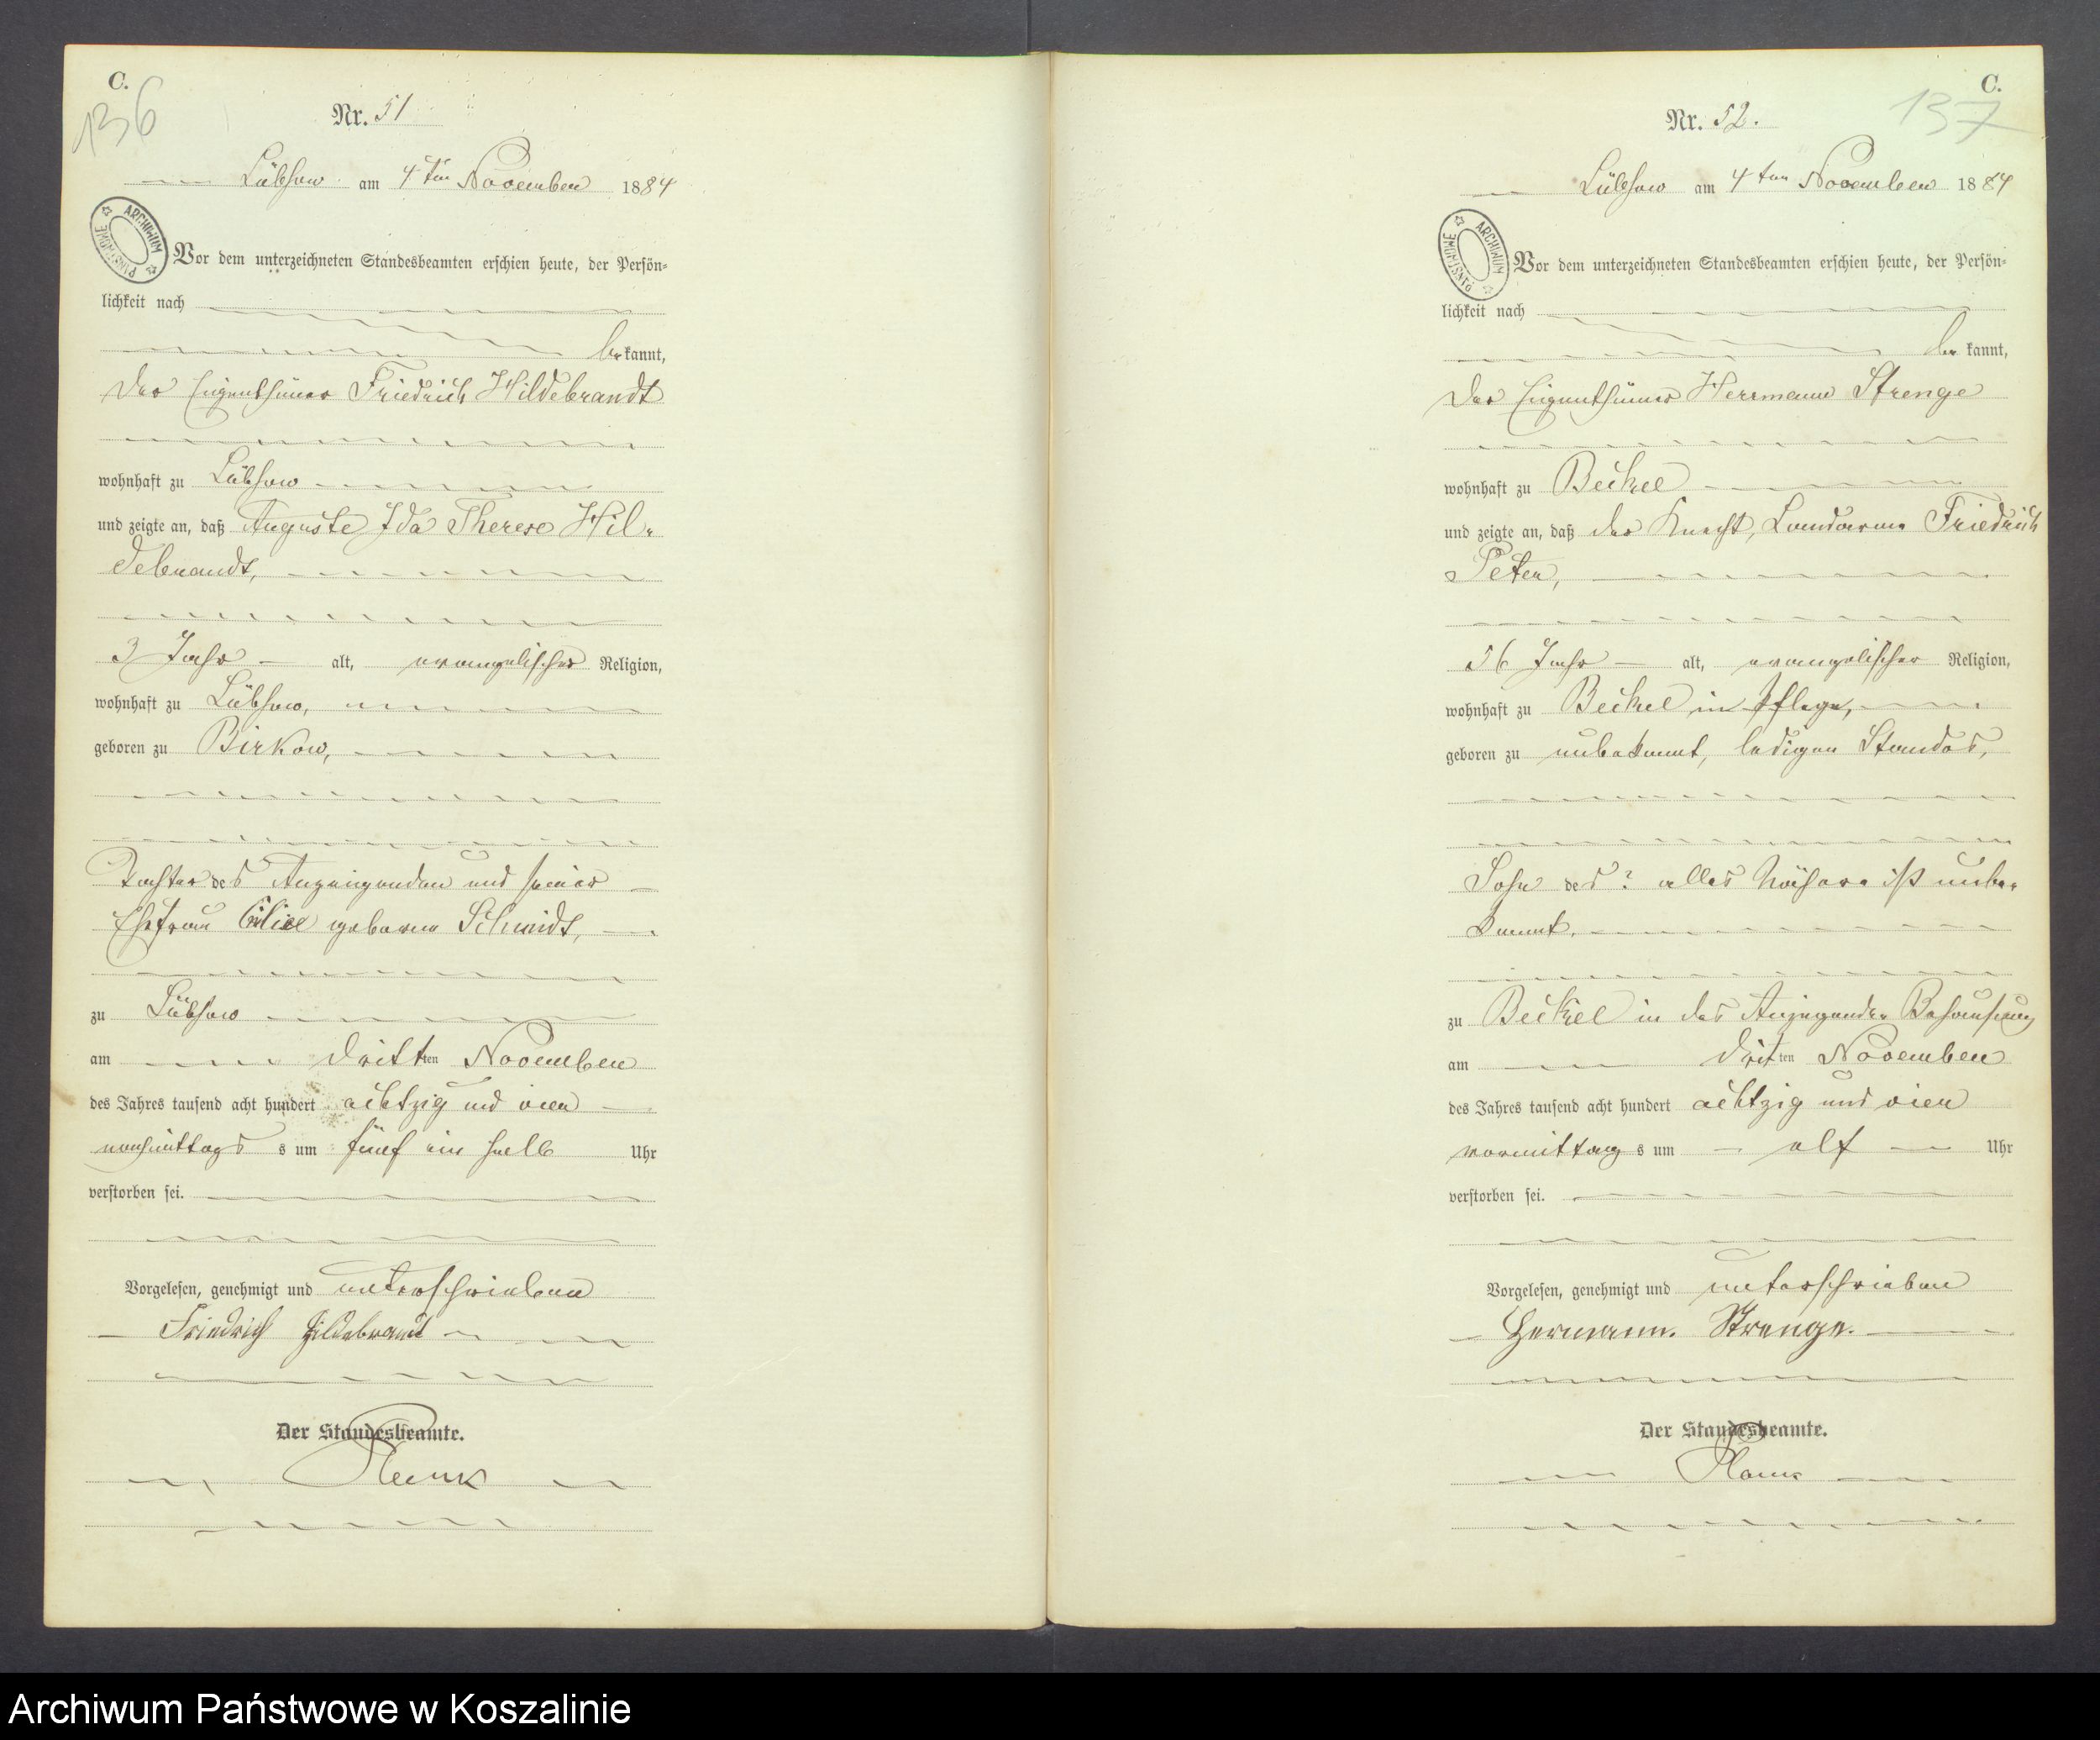 C.
136
Nr. 51
Lübsow am 4ten November 1884
ARCHIWUM PAŃSTWOWE
Vor dem unterzeichneten Standesbeamten erschien heute, der Persön-
lichkeit nach
bekannt,
der Eigenthümer Friedrich Hildebrandt
wohnhaft zu Lübsow
und zeigte an, daß Auguste Ida Therese Hil-
debrandt,
3 Jahr alt, evangelischer Religion,
wohnhaft zu Lübsow,
geboren zu Birkow,
Tochter des Anzeigenden und seiner
Ehefrau geborne Schmidt,
zu Lübsow
am dritten November
des Jahres tausend acht hundert achtzig und vier
nachmittags s um fünf ein halb Uhr
verstorben sei.
Vorgelesen, genehmigt und unterschrieben
Friedrich Hildebrandt
Der Standesbeamte.
C.
137
Nr. 52.
Lübsow am 4ten November 1884
ARCHIWUM PAŃSTWOWE
Vor dem unterzeichneten Standesbeamten erschien heute, der Persön-
lichkeit nach
bekannt,
der Eigenthümer Herrmann Strenge
wohnhaft zu Beckel
und zeigte an, daß der Knecht, Landarme Friedrich
Peter,
56 Jahr alt, evangelischer Religion,
wohnhaft zu Beckel in Pflege,
geboren zu unbekannt, ledigen Standes,
Sohn des? alles Nähere ist unbe-
kannt.
zu Beckel in des Anzeigenden Behausung
am dritten November
des Jahres tausend acht hundert achtzig und vier
vormittags um elf Uhr
verstorben sei.
Vorgelesen, genehmigt und unterschrieben
Hermann. Strenge.
Der Standesbeamte.
Archiwum Państwowe w Koszalinie